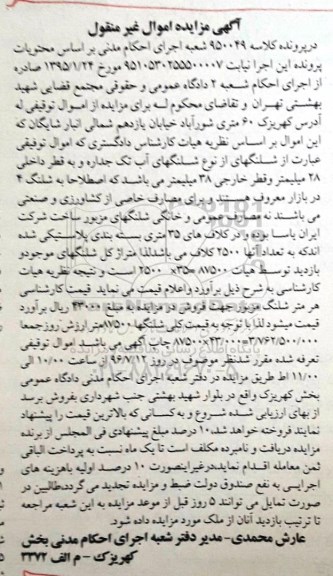 آگهی مزایده اموال غیر منقول
درپرونده کلاسه ۹۵۰۰۴۹ شعبه اجرای احکام مدنی بر اساس محتویات
پرونده این اجرا نیابت ۹۵۱۰۵۳۰۲۵۵۵۰۰۰۰۷ مورخ ۱۳۹۵/۱/۲۴ صادره
از اجرای احکام شعبه ۲ دادگاه عمومی و حقوقی مجتمع قضایی شهید
بهشتی تهران و تقاضای محکوم لـه برای مزایده از اموال توقیفی له
آدرس کهریزک ۶۰ متری شورآباد خیابان یازدهم شمالی انبار شایگان که
این اموال بر اساس نظریه هیات کارشناس دادگستری که اموال توقیفی
عبارت از شلنگهای از نوع شلنگهای آب تک جداره و به قطر داخلی
۲۸ میلیمتر وقطر خارجی ۳۸ میلیمتر می باشد که اصطلاحا به شلنگ ۴
در بازار معروف می بـ ند و برای مصارف خاصی از کشاورزی و صنعتی
می باشند نه مصارف عمومی و خانگی شلنگهای مزبور ساخت شرکت
ایران یاسا بوده و در کلاف های ۳۵ متری بسته بندی پلاستیکی شده
اندکه به تعداد آنها ۲۵۰۰ کلاف می باشدلذا متراژ کل شلنگهای موجودو
بازدید توسط هیات ۸۷۵۰۰=۳۵× ۲۵۰۰ است و نتیجه نظریه هیات
کارشناسی به شرح ذیل برآورد واعلام قیمت می نماید قیمت کارشناسی
هر متر شلنگ مزبور جهت فروش در مزایده به مبلغ ۴۳۰۰۰ ریال برآورد
قیمت میشود لذا با توجه به قیمت کلی شلنگها ۸۷۵۰۰متر ارزش روزجمعا
۸۷۵۰۰×۴۳/۰۰۰=۳/۷۶۲/۵۰۰/۰۰۰ چاپ آگهی می باشد اموال توقیفی
تعرفه شده مقرر شدنظر موقوفی در روز ۹۶/۷/۱۲ از ساعت ۱۰/۰۰ الی
۱۱/۰۰ اط طریق مزایده در دفتر شعبه اجرای احکام مدنی دادگاه عمومی
بخش کهریزک واقع در بلوار شهید بهشتی جنب شهرداری بفروش برسد
از بهای ارزیابی شده شروع و به کسانی که بالاترین قیمت را پیشنهاد
نمایند فروخته خواهد شد، ۱۰ درصد مبلغ پیشنهادی فی المجلس از برنده
مزایده دریافت و نامبرده مکلف است تا یک ماه نسبت به پرداخت الباقی
ثمن معامله اقدام نماید،درغیراینصورت ۱۰ درصد اولیه باهزینه های
اجرایی به نفع صندوق دولت ضبط و مزایده تجدید می گردد،طالبین در
صورت تمایل می توانند ۵ روز قبل از موعد مزایده به این شعبه مراجعه
تا ترتیب بازدید آنان از ملک مورد مزایده داده شود.
عارش محمدی- مدیر دفتر شعبه اجرای احکام مدنی بخش
کهریزک - م الف ۳۳۷۲